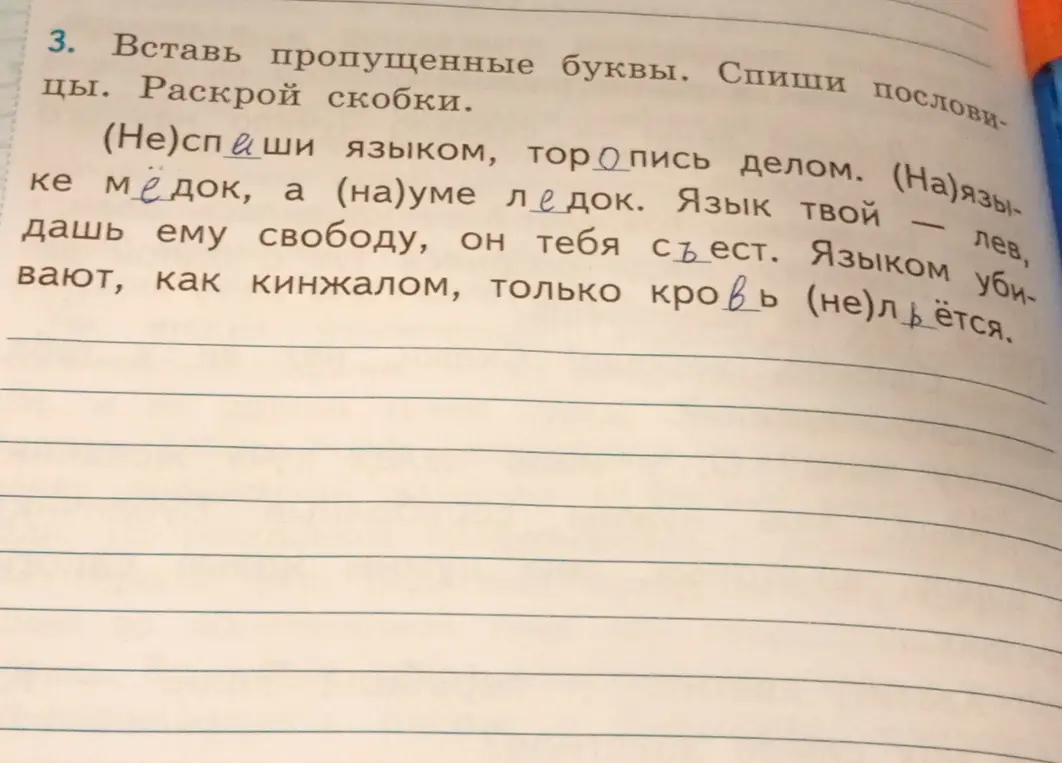 3. Вставь пропущенные буквы. Спиши послови-
цы. Раскрой скобки.
(Не)спиши языком, торопись делом. (На)язы-
ке мёдок, а (на)уме ледок. Язык твой — лев,
дашь ему свободу, он тебя съест. Языком уби-
вают, как кинжалом, только кровь (не)льётся.